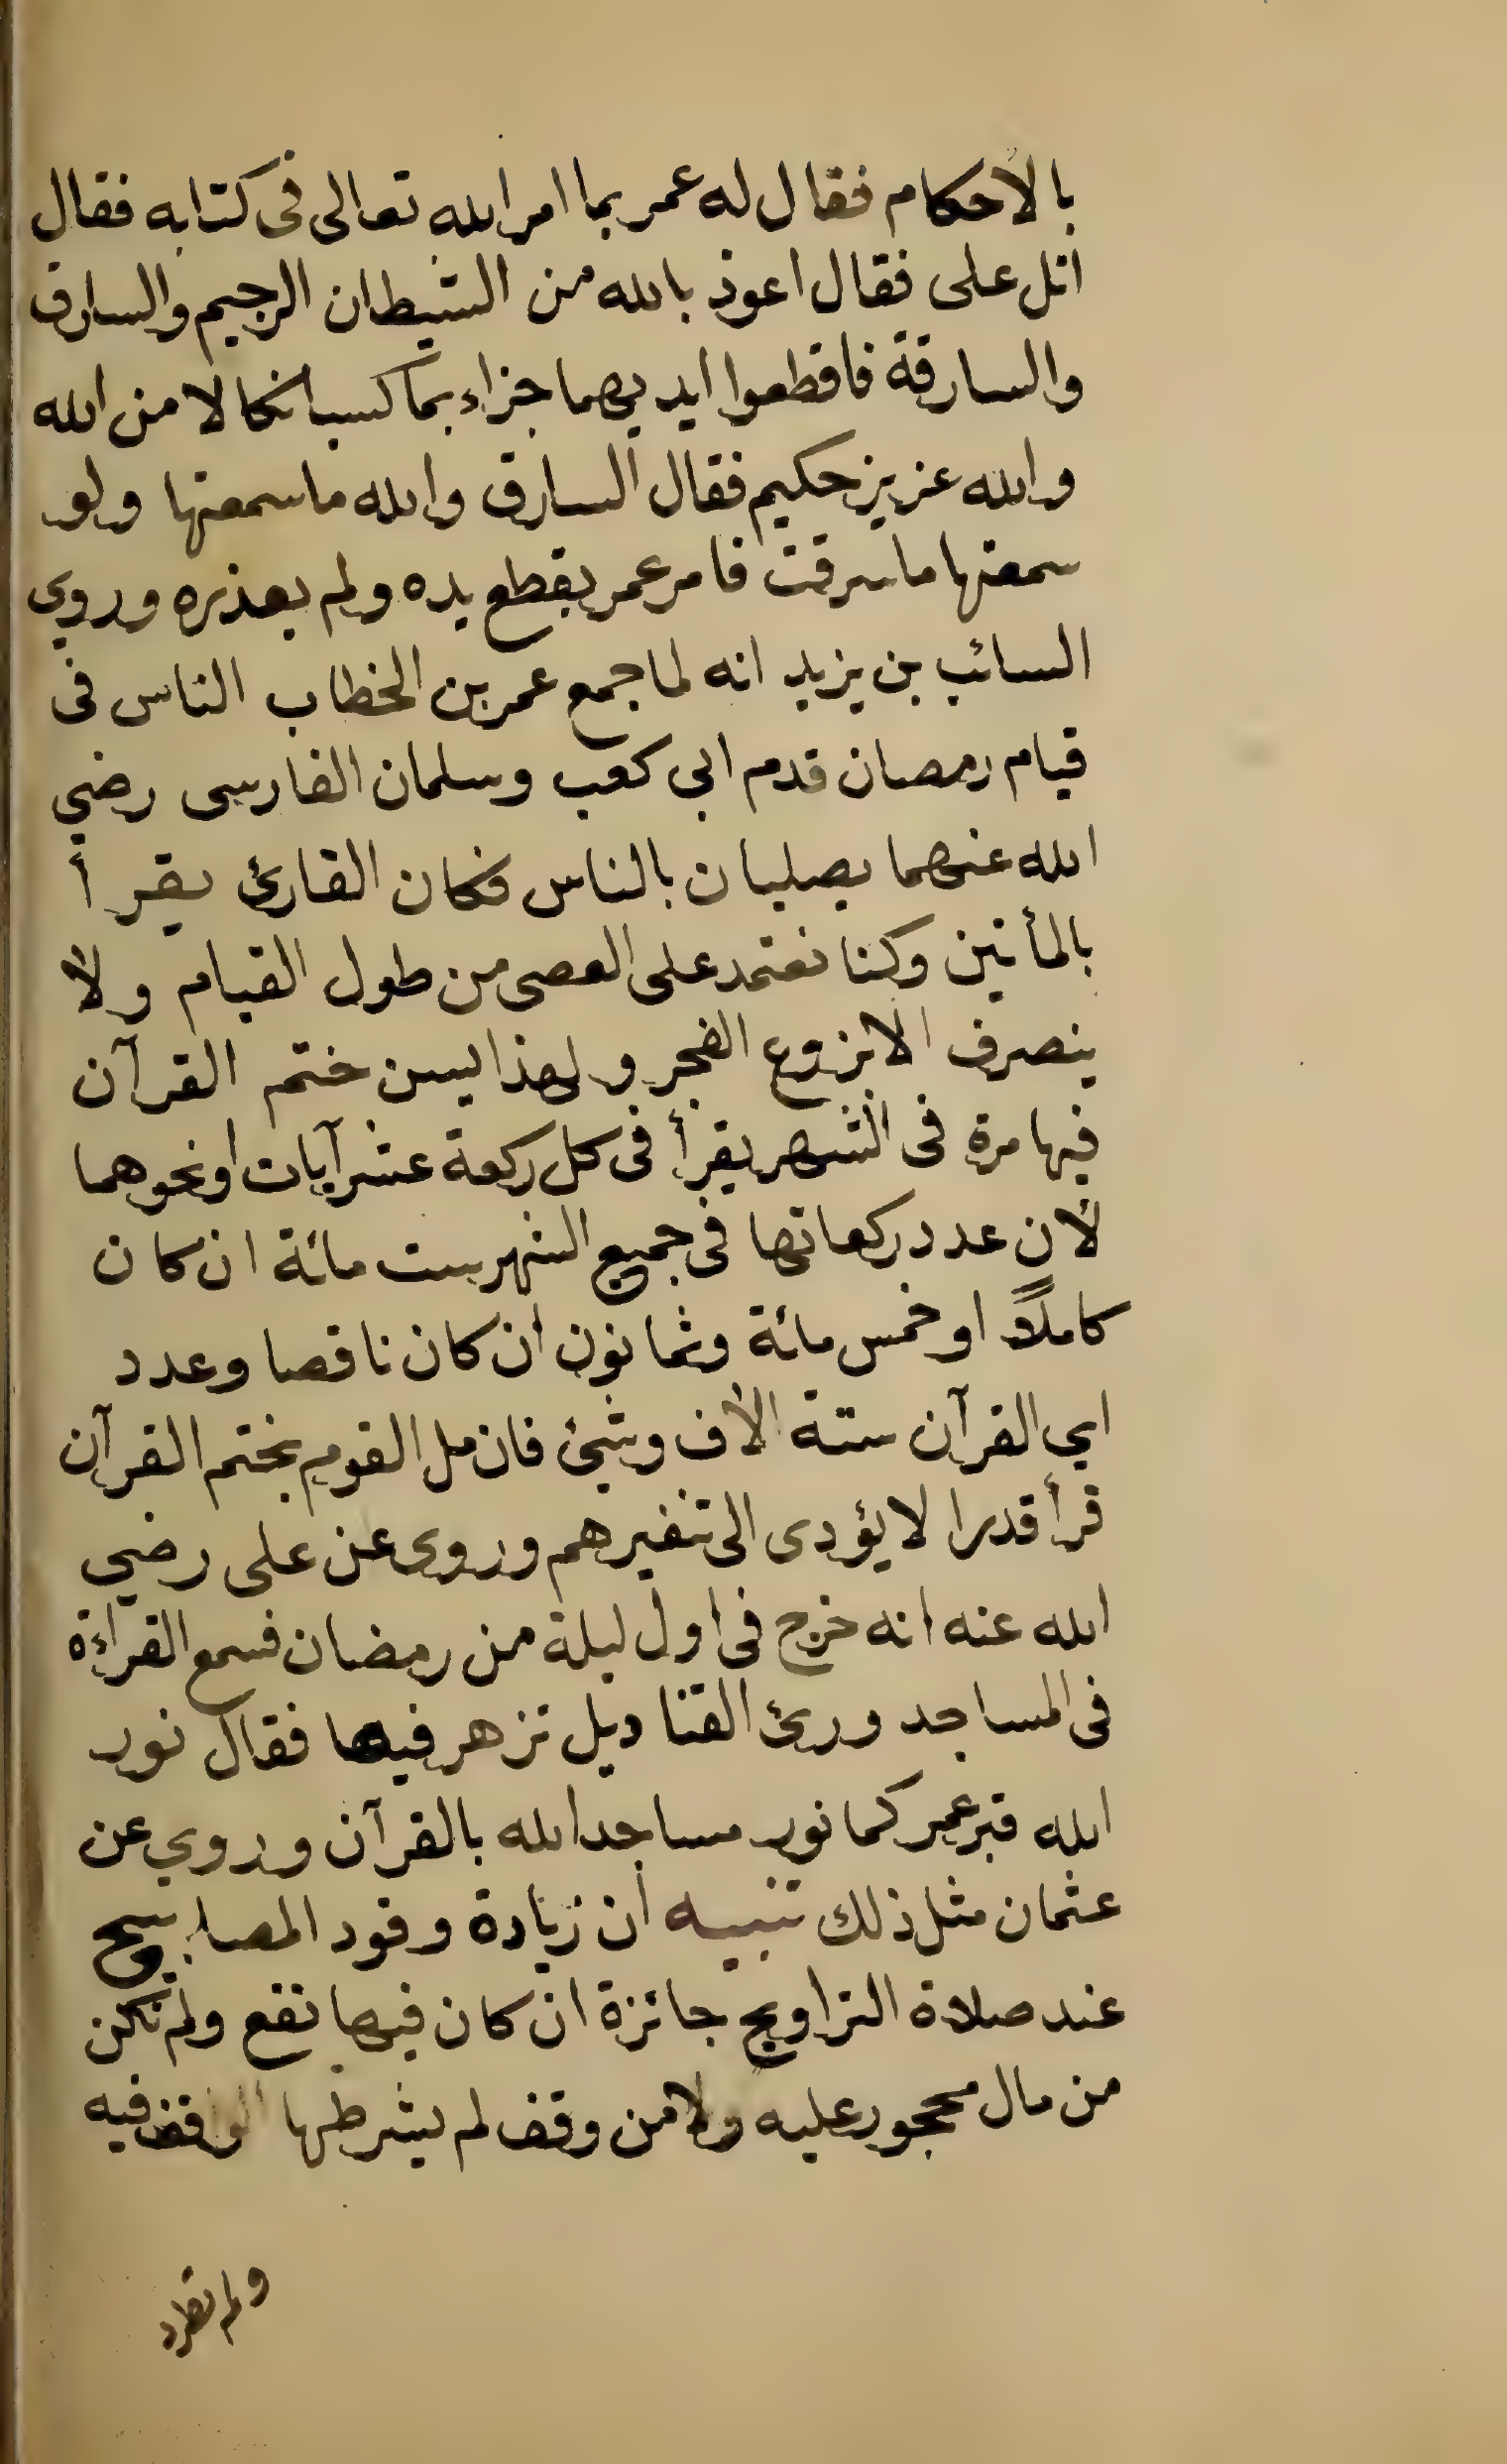 بالاحكام فقال له عمر بما امر الله تعالى فى كتابه فقال
اتل على فقال اعوذ بالله من الشيطان الرجيم والسارق
والسارقة فاقطعوا ايديهما جزاء بما كسبا نكالا من الله
والله عزيز حكيم فقال السارق والله ما سمعتها ولو
سمعتها ما سرقت فامر عمر بقطع يده ولم يعذره وروي
السائب بن يزيد انه لما جمع عمر بن الخطاب الناس فى
قيام رمصان قدم ابي كعب وسلمان الفارسى رضي
الله عنهما يصليان بالناس فكان القارئ يقرأ
بالمأتين وكنا نعتمد على العصى من طول القيام ولا
ينصرف الا بزوع الفجر ولهذا يسن ختم القرآن
فيها مرة فى الشهر يقرأ فى كل ركعة عشر آيات او نحوهما
لان عدد ركعاتها فى جميع الشهر ست مائة ان كان
كاملاً او خمس مائة وثمانون ان كان ناقصا وعدد
اي القرآن ستة الاف وشئ فان مل القوم بختم القرآن
قرأ قدرا لا يؤدى الى تنفيرهم وروى عن على رضي
الله عنه انه خرج فى اول ليلة من رمضان فسمع القراءة
فى المساجد ورئ القناديل تزهر فيها فقال نور
الله قبر عمر كما نور مساجد الله بالقرآن وروي عن
عثمان مثل ذلك تنبيه ان زيادة وقود المصابيح
عند صلاة التراويح جائزة ان كان فيها نفع ولم تكن
من مال محجور عليه ولا من وقف لم يشرطها الواقف فيه
ولم تطرد